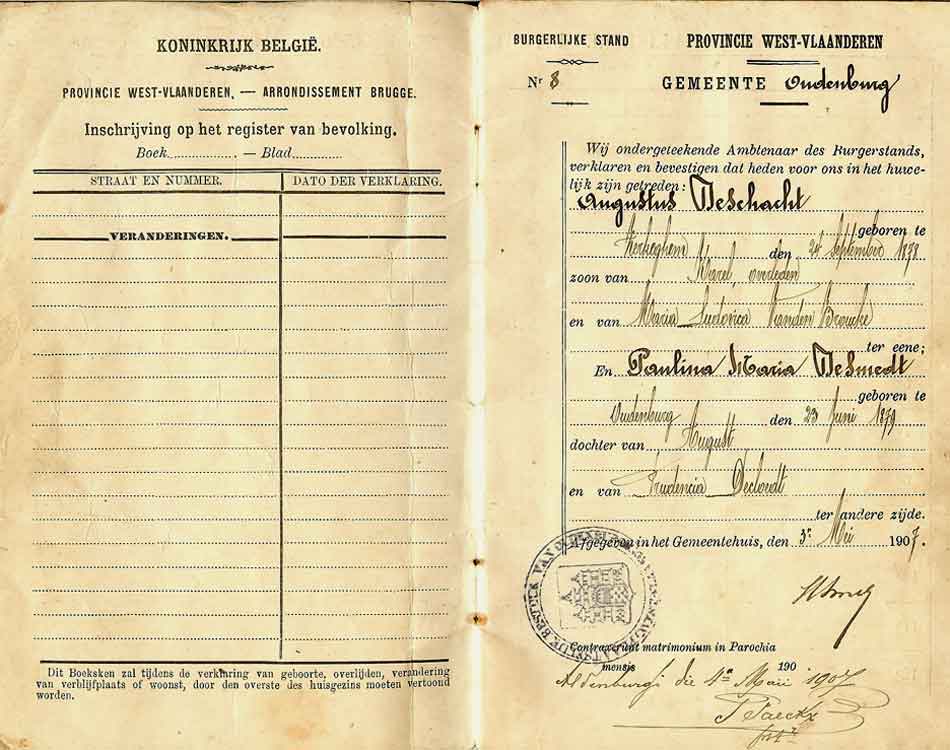 KONINKRIJK BELGIË.
PROVINCIE WEST-VLAANDEREN, — ARRONDISSEMENT BRUGGE.
Inschrijving op het register van bevolking.
Boek............ — Blad............
STRAAT EN NUMMER. DATO DER VERKLARING.
VERANDERINGEN.
Dit Boeksken zal tijdens de verklaring van geboorte, overlijden, verandering
van verblijfplaats of woonst, door den overste des huisgezins moeten vertoond
worden.
BURGERLIJKE STAND PROVINCIE WEST-VLAANDEREN
Nr 8 GEMEENTE Oudenburg
Wij ondergeteekende Ambtenaar des Burgerstands,
verklaren en bevestigen dat heden voor ons in het huwe-
lijk zijn getreden:
Augustus Deschacht
geboren te
Zerkeghem den 24 September 1878
zoon van Karel, overleden
en van Maria Ludovica Vanden Broucke
ter eene;
En Paulina Maria Desmedt
geboren te
Oudenburg den 23 Juni 1879
dochter van August
en van Prudencia Decloedt
ter andere zijde.
Afgegeven in het Gemeentehuis, den 3n Mei 1907.
Contraxerunt matrimonium in Parochia
mensis 190
Aldenburgi die 1a Maii 1907